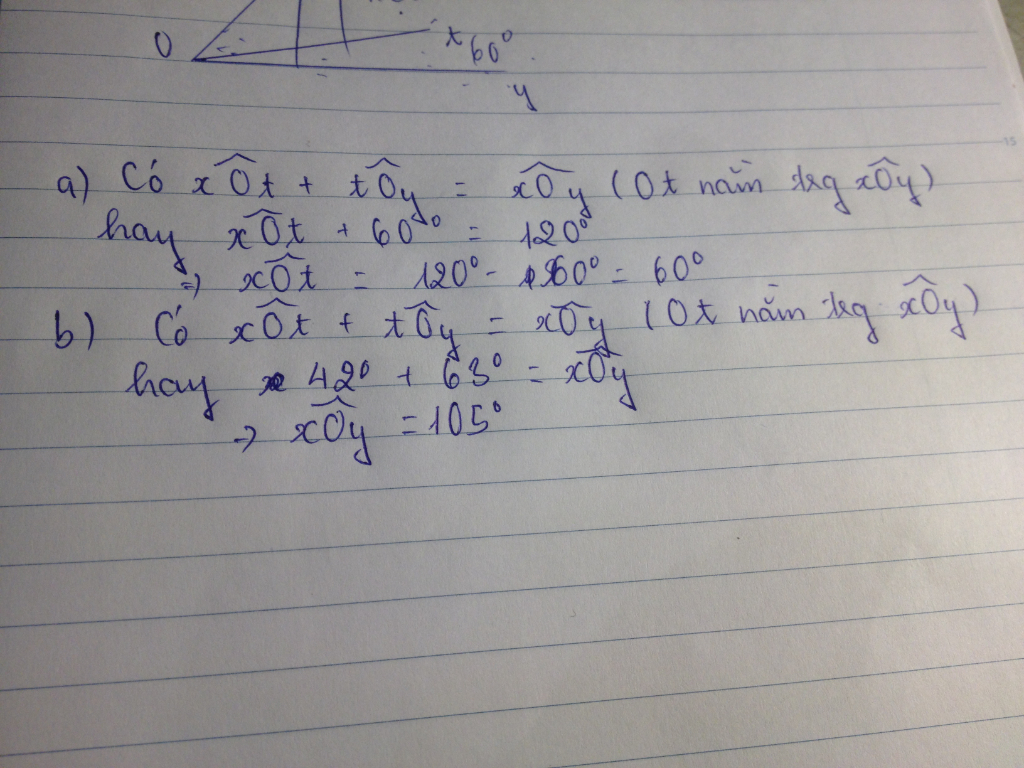 O
t 60°
y
a) Có xÔt + tÔy = xÔy (Ot nằm trg xÔy)
hay xÔt + 60° = 120°
=> xÔt = 120° - 60° = 60°
b) Có xÔt + tÔy = xÔy (Ot nằm trg xÔy)
hay 42° + 63° = xÔy
=> xÔy = 105°